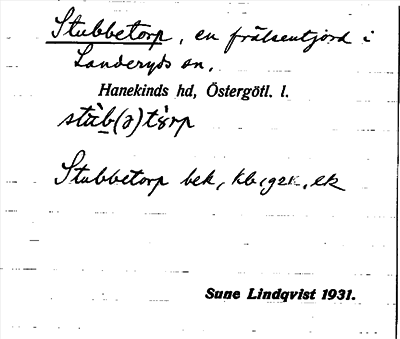 Stubbetorp, en frälseutjord i
Landeryds sn,
Hanekinds hd, Östergötl. l.
stùb(ə)tàrp
Stubbetorp bek, kb, gek, ek
Sune Lindqvist 1931.